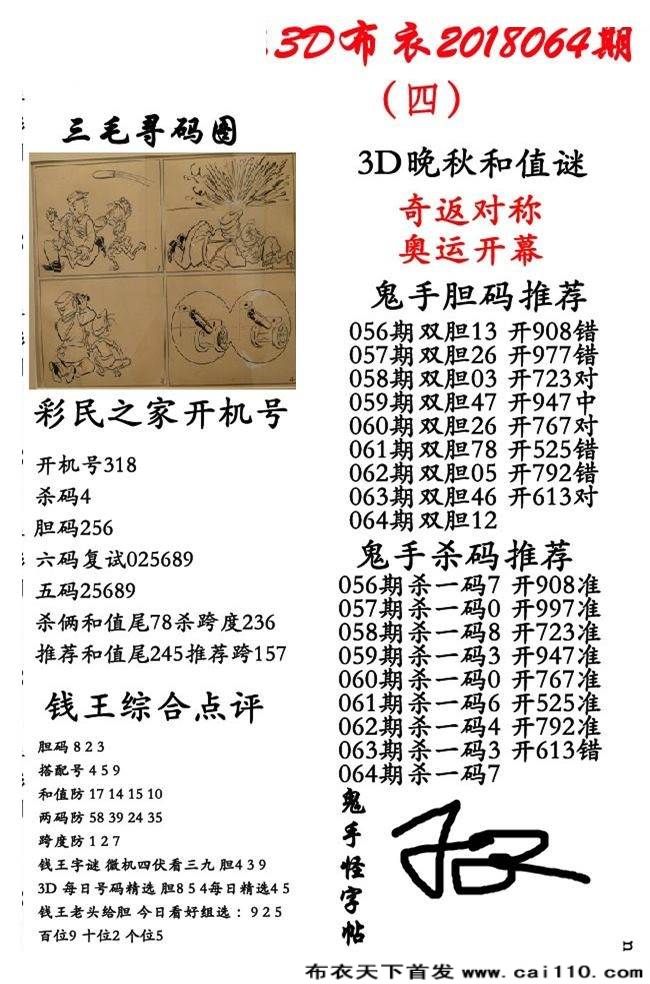 3D布衣2018064期
（四）
三毛寻码图
彩民之家开机号
开机号318
杀码4
胆码256
六码复试025689
五码25689
杀俩和值尾78杀跨度236
推荐和值尾245推荐跨157
钱王综合点评
胆码 8 2 3
搭配号 4 5 9
和值防 17 14 15 10
两码防 58 39 24 35
跨度防 1 2 7
钱王字谜 微机四伏看三九 胆4 3 9
3D 每日号码精选 胆8 5 4每日精选4 5
钱王老头给胆 今日看好组选： 9 2 5
百位9 十位2 个位5
3D晚秋和值谜
奇返对称
奥运开幕
鬼手胆码推荐
056期 双胆13 开908错
057期 双胆26 开977错
058期 双胆03 开723对
059期 双胆47 开947中
060期 双胆26 开767对
061期 双胆78 开525错
062期 双胆05 开792错
063期 双胆46 开613对
064期 双胆12
鬼手杀码推荐
056期 杀一码7 开908准
057期 杀一码0 开997准
058期 杀一码8 开723准
059期 杀一码3 开947准
060期 杀一码0 开767准
061期 杀一码6 开525准
062期 杀一码4 开792准
063期 杀一码3 开613错
064期 杀一码7
鬼手怪字帖
布衣天下首发 www.cai110.com